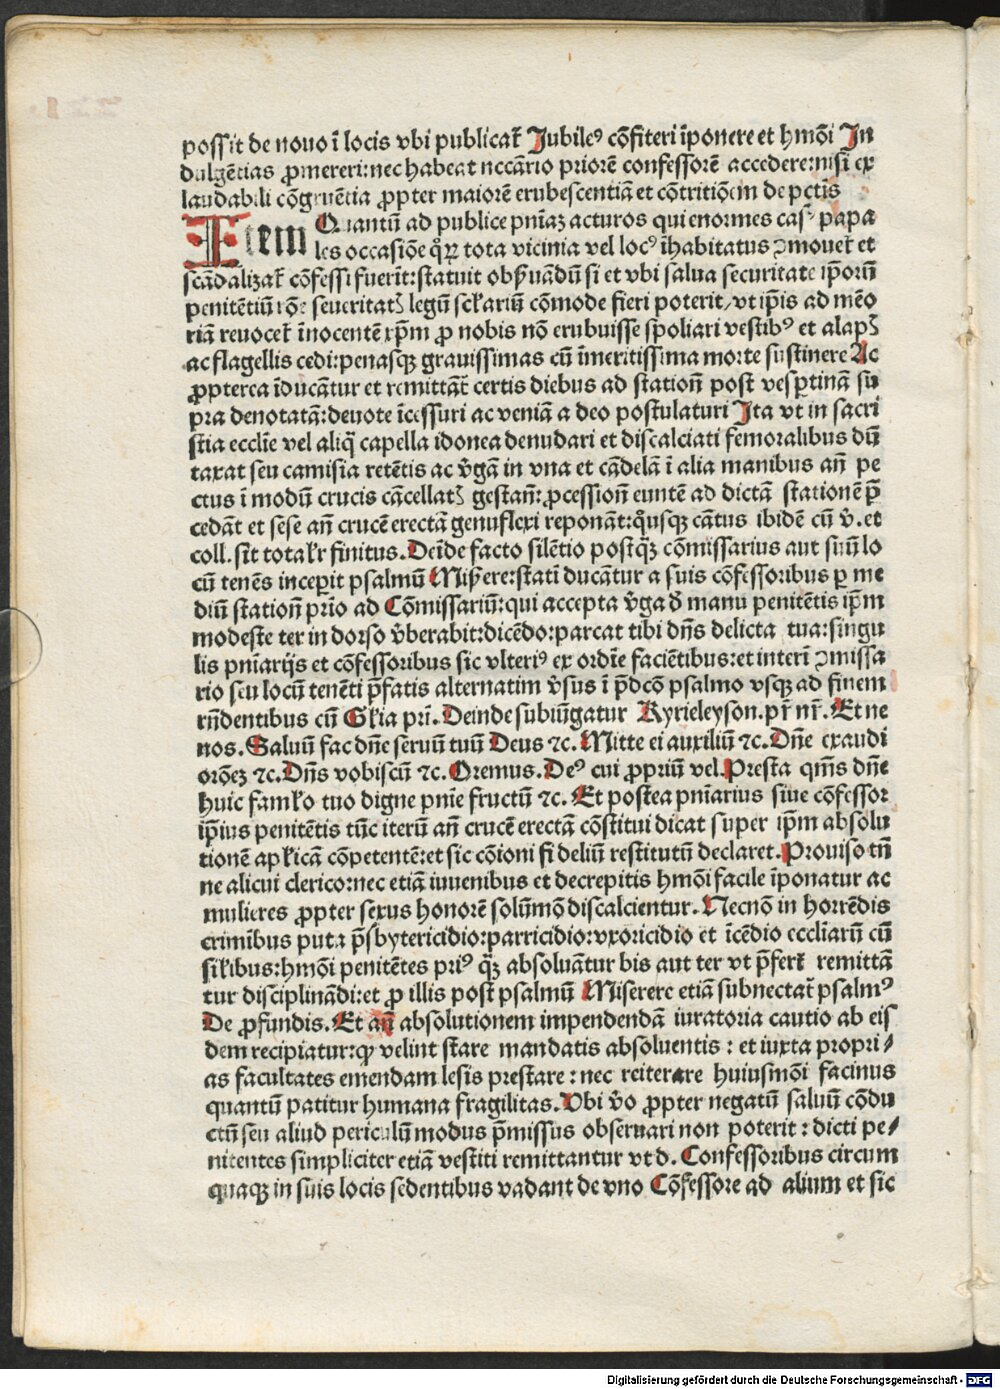 possit de nouo ī locis vbi publicat᷑ Jubileꝰ cōfiteri īponere et hmōi In
dulgētias ꝓmereri:nec habeat nccārio priorē confessorē accedere:nisi ex
laudabili cōgruētia ꝓpter maiorē erubescentiā et cōtritiōem de pctīs
Item Quantū ad publice pnīaꝫ acturos qui enormes casꝰ papa
les occasiōe q̄ꝝ tota vicinia vel locꝰ īhabitatus ꝯmouet᷑ et
scādalizat᷑ cōfessi fuerīt:statuit obꝰuādū si et vbi salua securitate ip̄orū
penitētiū rōe seueritatꝭ legū scƚariū cōmode fieri poterit/vt ip̄is ad mēo
riā reuocet᷑ īnocentē xp̄m ꝓ nobis nō erubuisse spoliari vestibꝰ et alapꝭ
ac flagellis cedi:penasqꝫ grauissimas cū īmeritissima morte sustinere Ac
ꝓpterea īducātur et remittāt᷑ certis diebus ad stationē post vesꝑtinā su
pra denotatā:deuote īcessuri ac veniā a deo postulaturi Ita vt in sacri
stia ecclīe vel aliq̄ capella idonea denudari et discalciati femoralibus dū
taxat seu camisia retētis ac v̄gā in vna et cādelā ī alia manibus an̄ pe
ctus ī modū crucis cācellatꝭ gestan̄:ꝓcessionē euntē ad dictā stationē p̄
cedāt et sese an̄ crucē erectā genuflexi reponāt:q̄usqꝫ cātus ibidē cū v̄. et
coll. sīt totaƚr finitus. Deīde facto silētio postq̄ꝫ cōmissarius aut suū lo
cū tenēs inceꝑit psalmū Miꝰere:statī ducātur a suis cōfessoribus ꝑ me
diū stationē prīo ad Cōmissariū:qui accepta v̄ga ꝺ manu penitētis ip̄m
modeste ter in dorso v̄berabit:dicēdo:parcat tibi dn̄s delicta tua:singu
lis pnīarijs et cōfessoribus sic vlteriꝰ ex ordīe faciētibus:et interī ꝯmissa
rio seu locū tenēti p̄fatis alternatim v̄sus ī p̄dcō psalmo vsqꝫ ad finem
rn̄dentibus cū Gƚia pr̄i. Deinde subiūgatur Kyrieleyson. pr̄ nr̄. Et ne
nos. Saluū fac dn̄e seruū tuū Deus ⁊c. Mitte ei auxiliū ⁊c. Dn̄e exaudi
orōeꝫ ⁊c. Dn̄s vobiscū ⁊c. Oremus. Deꝰ cui ꝓpriū vel. Presta qm̄s dn̄e
huic famƚo tuo digne pnīe fructū ⁊c. Et postea pnīarius siue cōfessor
ip̄ius penitētis tūc iterū an̄ crucē erectā cōstitui dicat super ip̄m absolu
tionē apƚicā cōpetentē:et sic cōioni fideliū restitutū declaret. Prouiso tn̄
ne alicui clerico:nec etiā iuuenibus et decrepitis hmōi facile īponatur ac
mulieres ꝓpter sexus honorē solūmō discalcientur. Necnō in horrēdis
crimībus puta p̄sbytericidio:parricidio:vxoricidio et īcēdio eccliarū cū
siƚibus:hmōi penitētes priꝰ q̄ꝫ absoluātur bis aut ter vt p̄fert᷑ remittā
tur disciplinādi:et ꝓ illis post psalmū Miserere etiā subnectat᷑ psalmꝰ
De ꝓfundis. Et an̄ absolutionem impendendā iuratoria cautio ab eis
dem recipiatur:qꝙ velint stare mandatis absoluentis : et iuxta propri/
as facultates emendam lesis prestare : nec reiterare huiusmōi facinus
quantū patitur humana fragilitas. Vbi v̄o ꝓpter negatū saluū cōdu
ctū seu aliud periculū modus p̄missus obseruari non poterit : dicti pe/
nitentes simpliciter etiā vestiti remittantur vt d. Confessoribus circum
quaqꝫ in suis locis sedentibus vadant de vno Cōfessore ad alium et sic
Digitalisierung gefördert durch die Deutsche Forschungsgemeinschaft - DFG